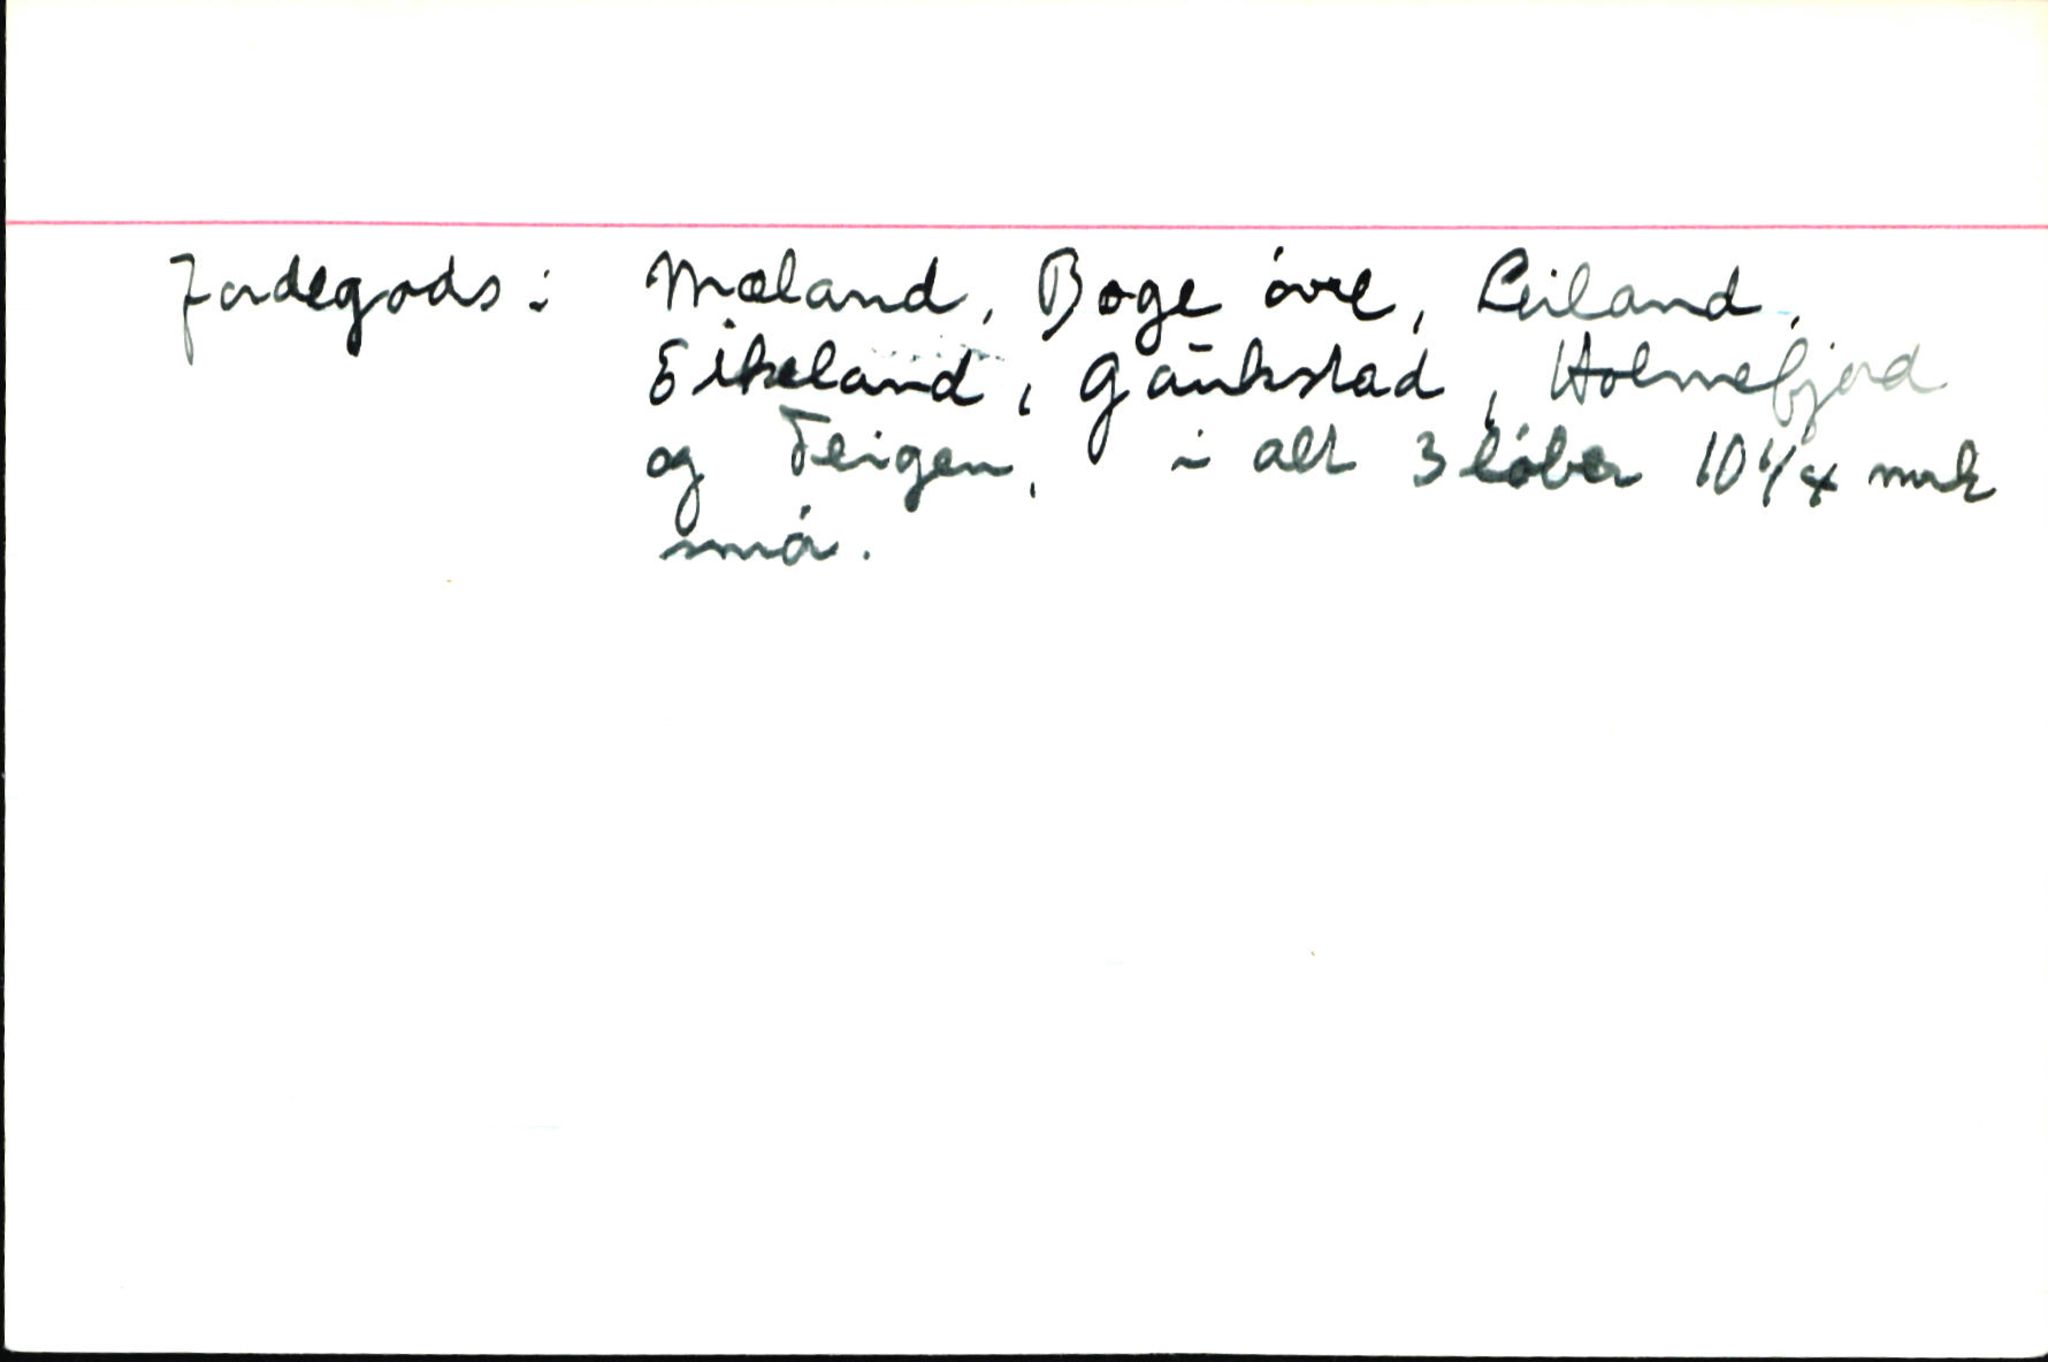 Jordegods: Mæland, Boge øvre, Leiland,
Eikeland, Gaukstad, Holmefjord
og Teigen, i alt 3 løber 10 1/4 mrk
smør.